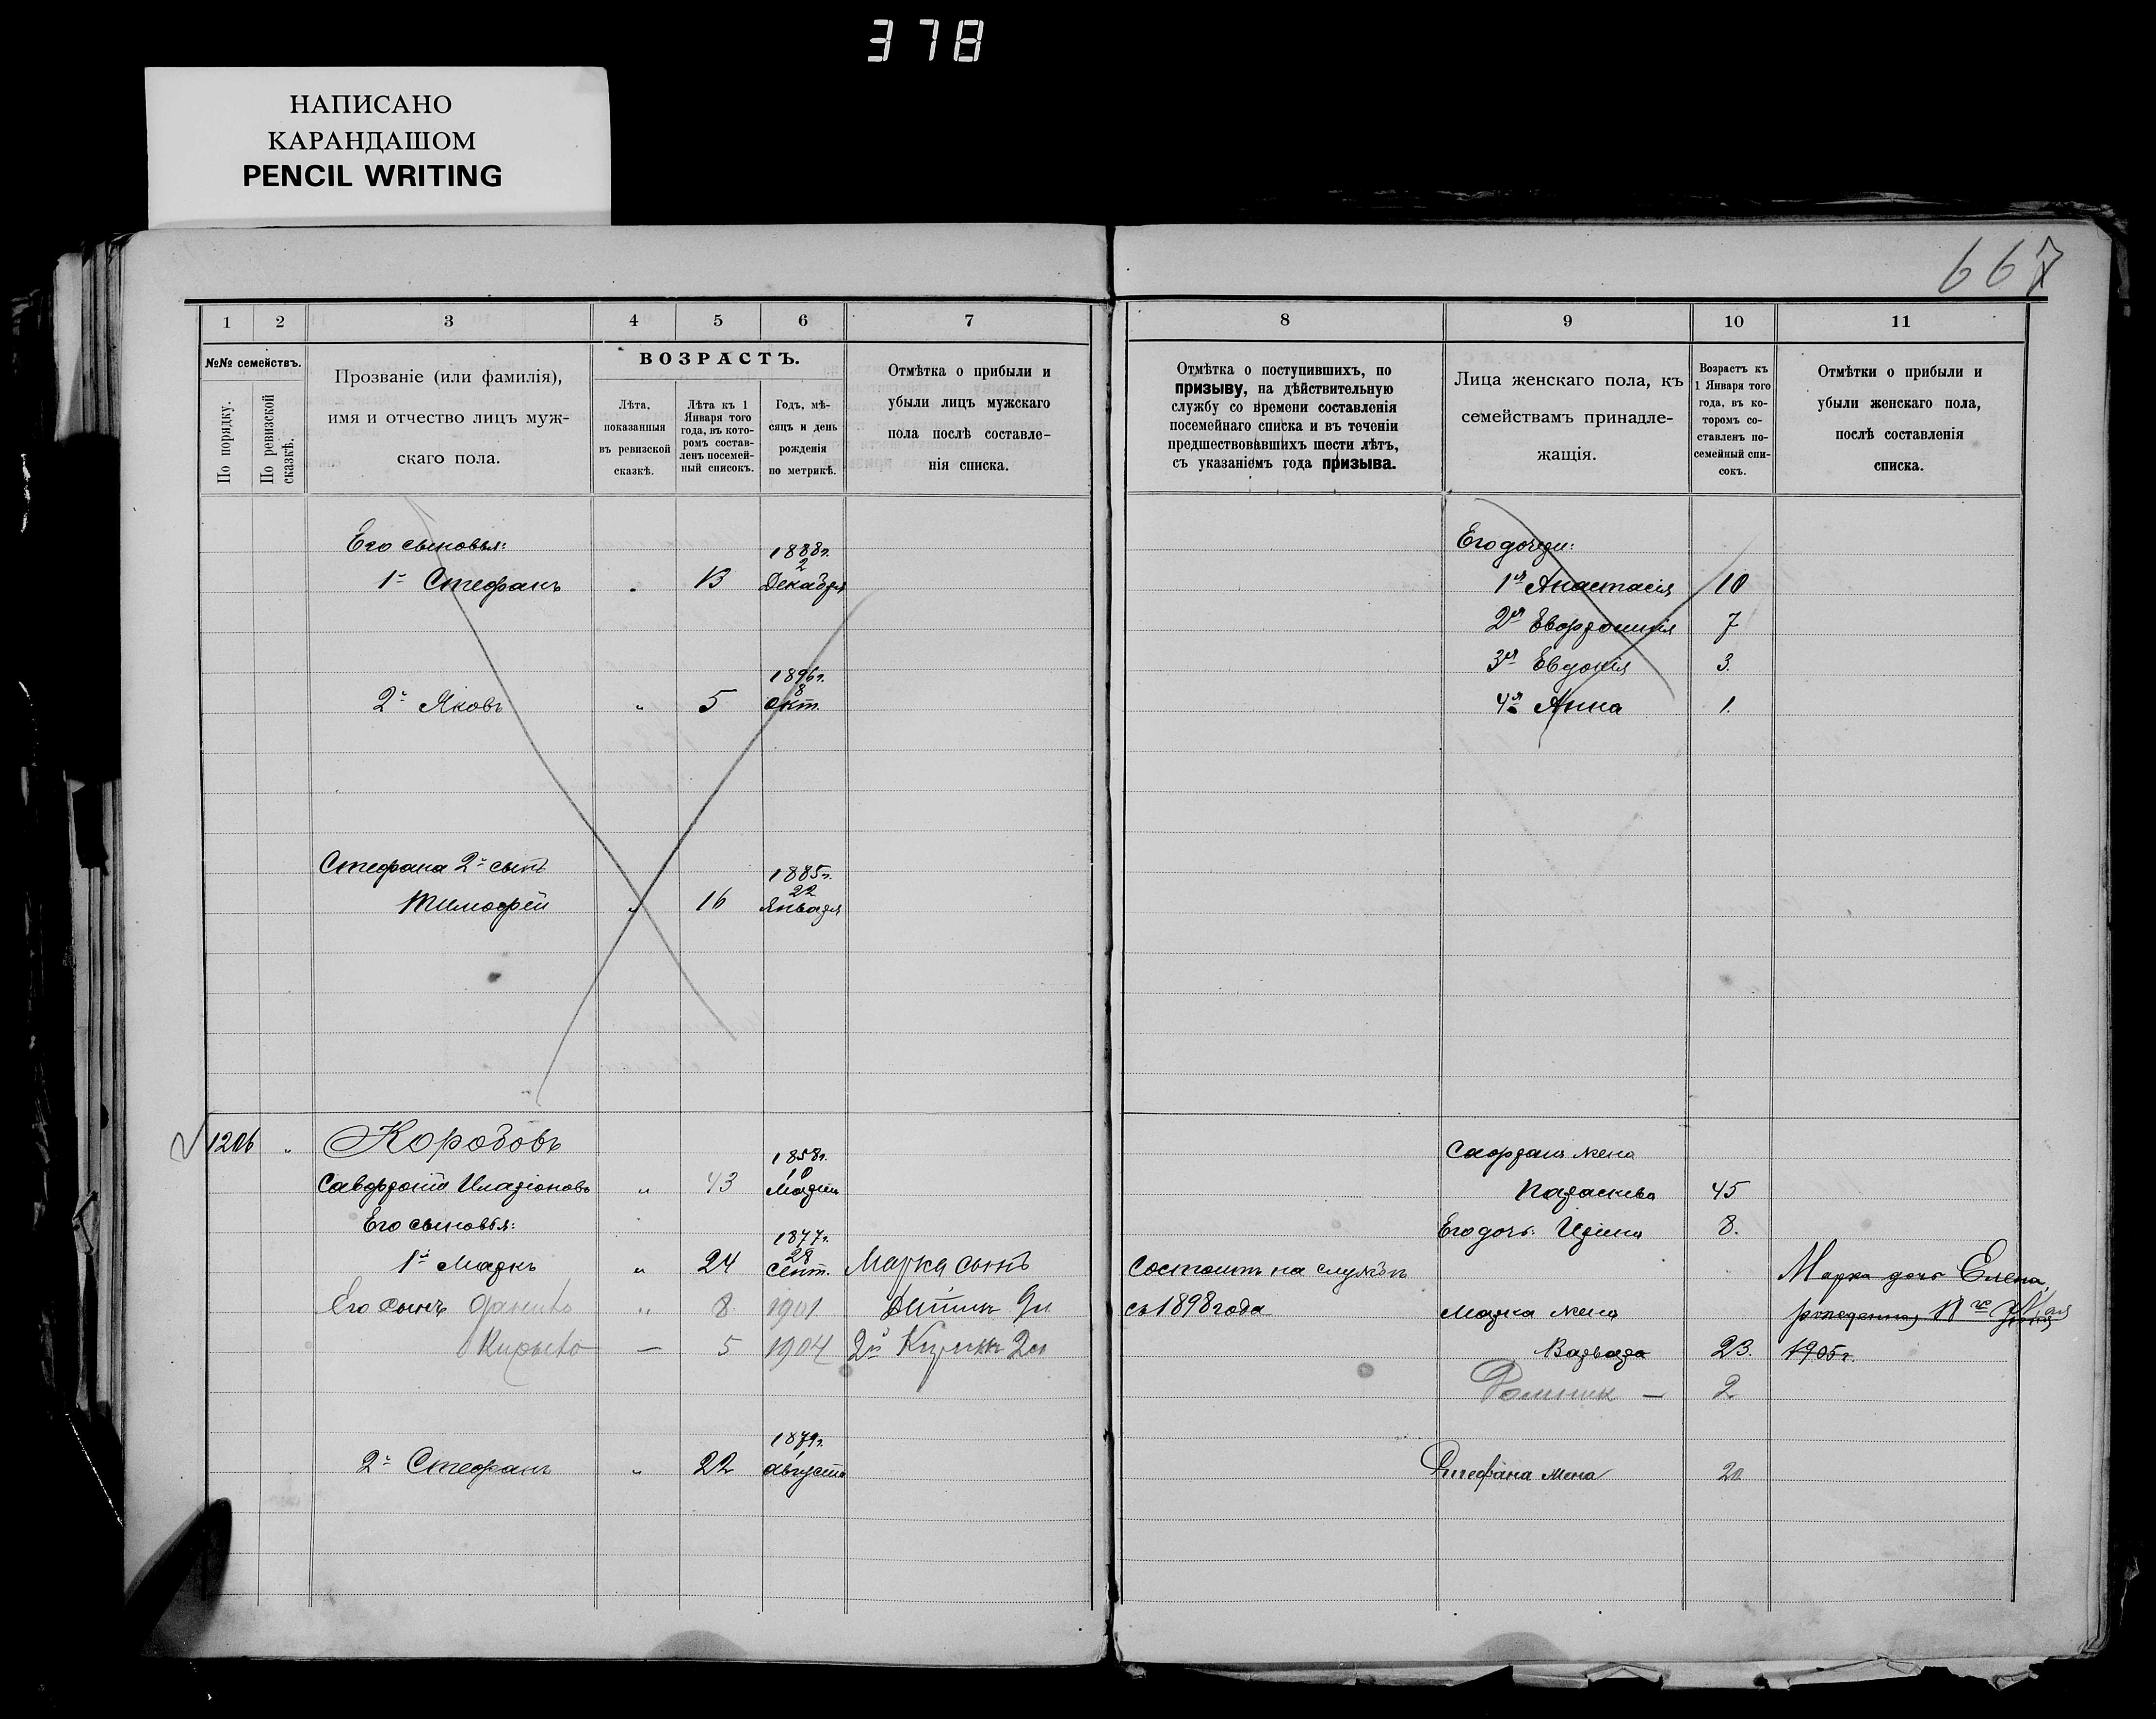 378
НАПИСАНО
КАРАНДАШОМ
PENCIL WRITING
667
1 2 3 4 5 6 7
№№ семействъ.
По порядку.
По ревизской сказкѣ.
Прозваніе (или фамилія),
имя и отчество лицъ муж-
скаго пола.
ВОЗРАСТЪ.
Лѣта,
показанныя
въ ревизской
сказкѣ.
Лѣта къ 1
Января того
года, въ кото-
ромъ состав-
ленъ посемей-
ный списокъ.
Годъ, мѣ-
сяцъ и день
рожденія
по метрикѣ.
Отмѣтка о прибыли и
убыли лицъ мужскаго
пола послѣ составле-
нія списка.
Его сыновья:
1888г.
2
1й Стефанъ " 13 Декабря
1896г.
8
2й Яковъ " 5 Окт.
Стефана 2й сынъ
1885г.
22
Тимофей " 16 Января
1206 " Коробовъ
1858г.
10
Савфронъ Иларіоновъ " 43 Марта
Его сыновья:
1877г.
28
1й Маркъ " 24 Сент. Марка сынъ
Его сынъ " 8 1901
— 5 1904 2й
1879г.
1
2й Стефанъ " 22 Августа
8 9 10 11
Отмѣтка о поступившихъ, по
призыву, на дѣйствительную
службу со времени составленія
посемейнаго списка и въ теченіи
предшествовавшихъ шести лѣтъ,
съ указаніемъ года призыва.
Лица женскаго пола, къ
семействамъ принадле-
жащія.
Возрастъ къ
1 Января того
года, въ ко-
торомъ со-
ставленъ по-
семейный спи-
сокъ.
Отмѣтки о прибыли и
убыли женскаго пола,
послѣ составленія
списка.
Его дочери:
1я Анастасія 10
2я Евфросинія 7
3я Евдокія 3.
4я Анна 1.
Сафрона жена
Параскева 45
Его дочь: Ирина 8.
Состоитъ на службѣ
съ 1898 года
Марка дочь Елена,
Марка жена
Варвара 23. 1905г.
— 2
Стефана жена 20